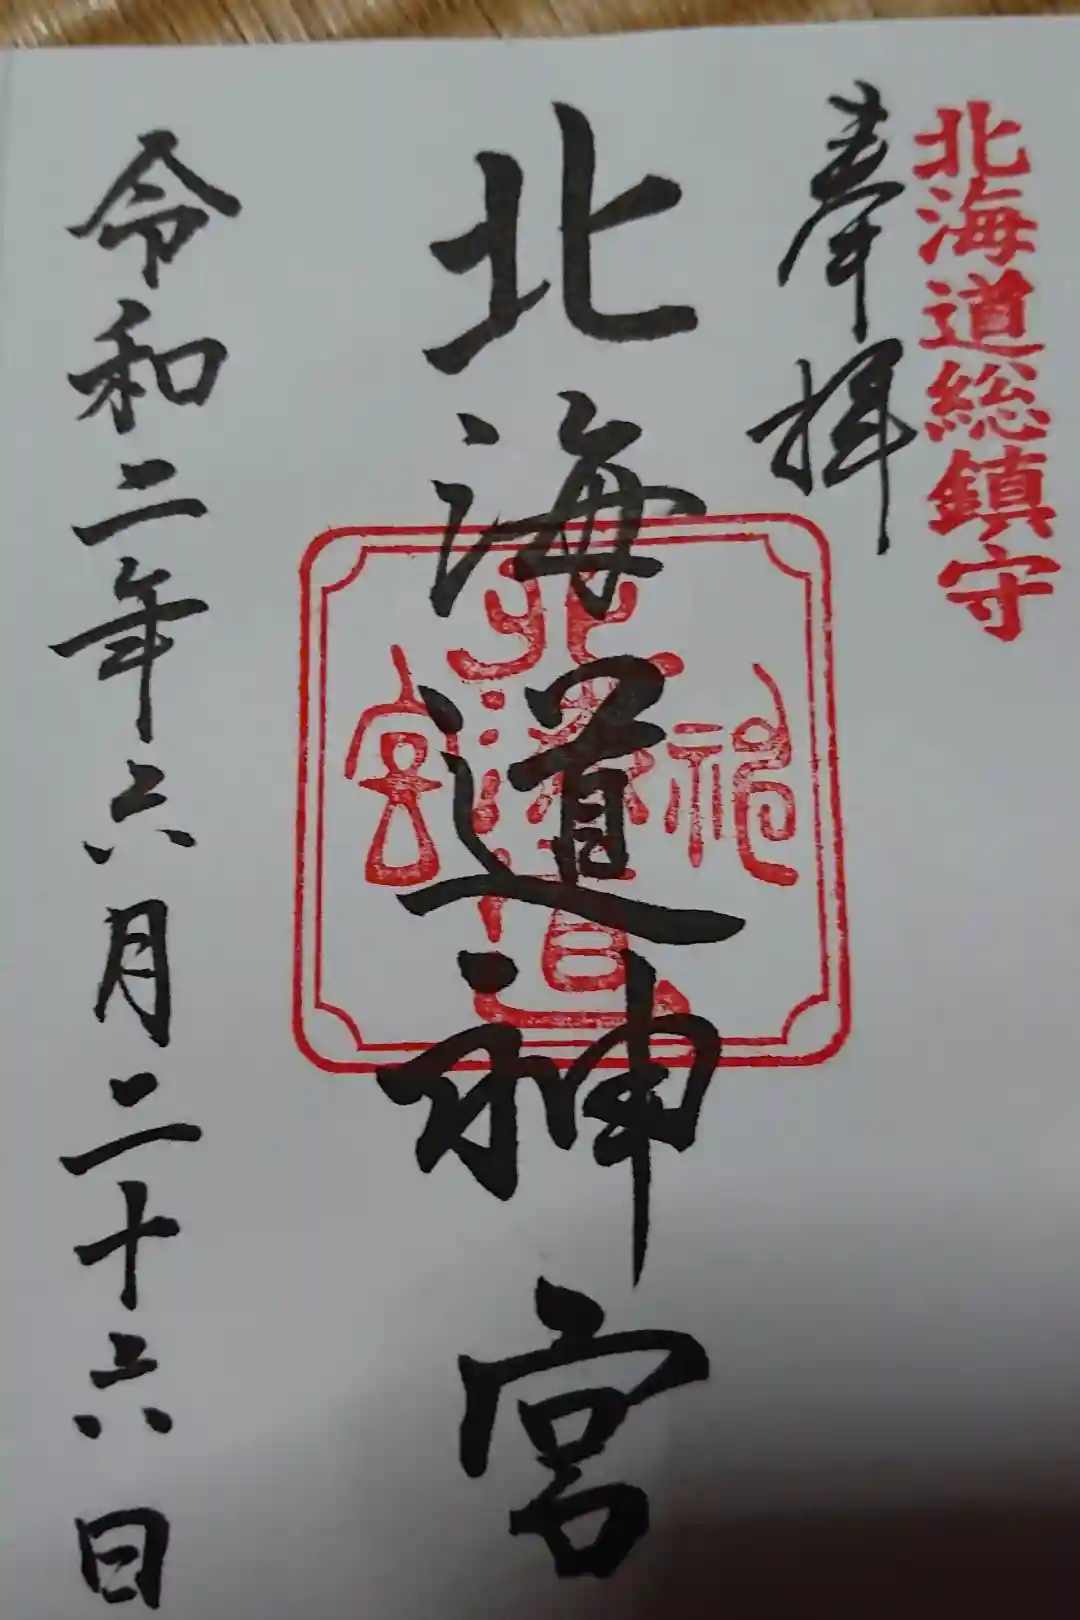 北海道総鎮守
奉拝
北海道神宮
北海道神宮
令和二年六月二十六日